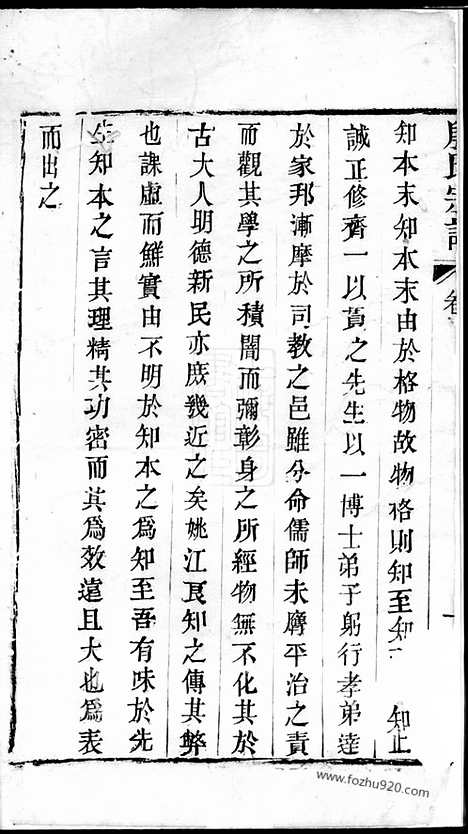 氏宗譜 卷
知本末知本末由於格物故物格則知至知 知止
誠正修齊一以貫之先生以一博士弟子躬行孝弟達
於家邦漸摩於司教之邑雖分命儒師未膺平治之責
而觀其學之所積闇而彌彰身之所經物無不化其於
古大人明德新民亦庶幾近之矣姚江良知之傳其弊
也課虛而鮮實由不明於知本之為知至吾有味於先
生知本之言其理精其功密而其為效遠且大也為表
而出之
www.fozhu920.com